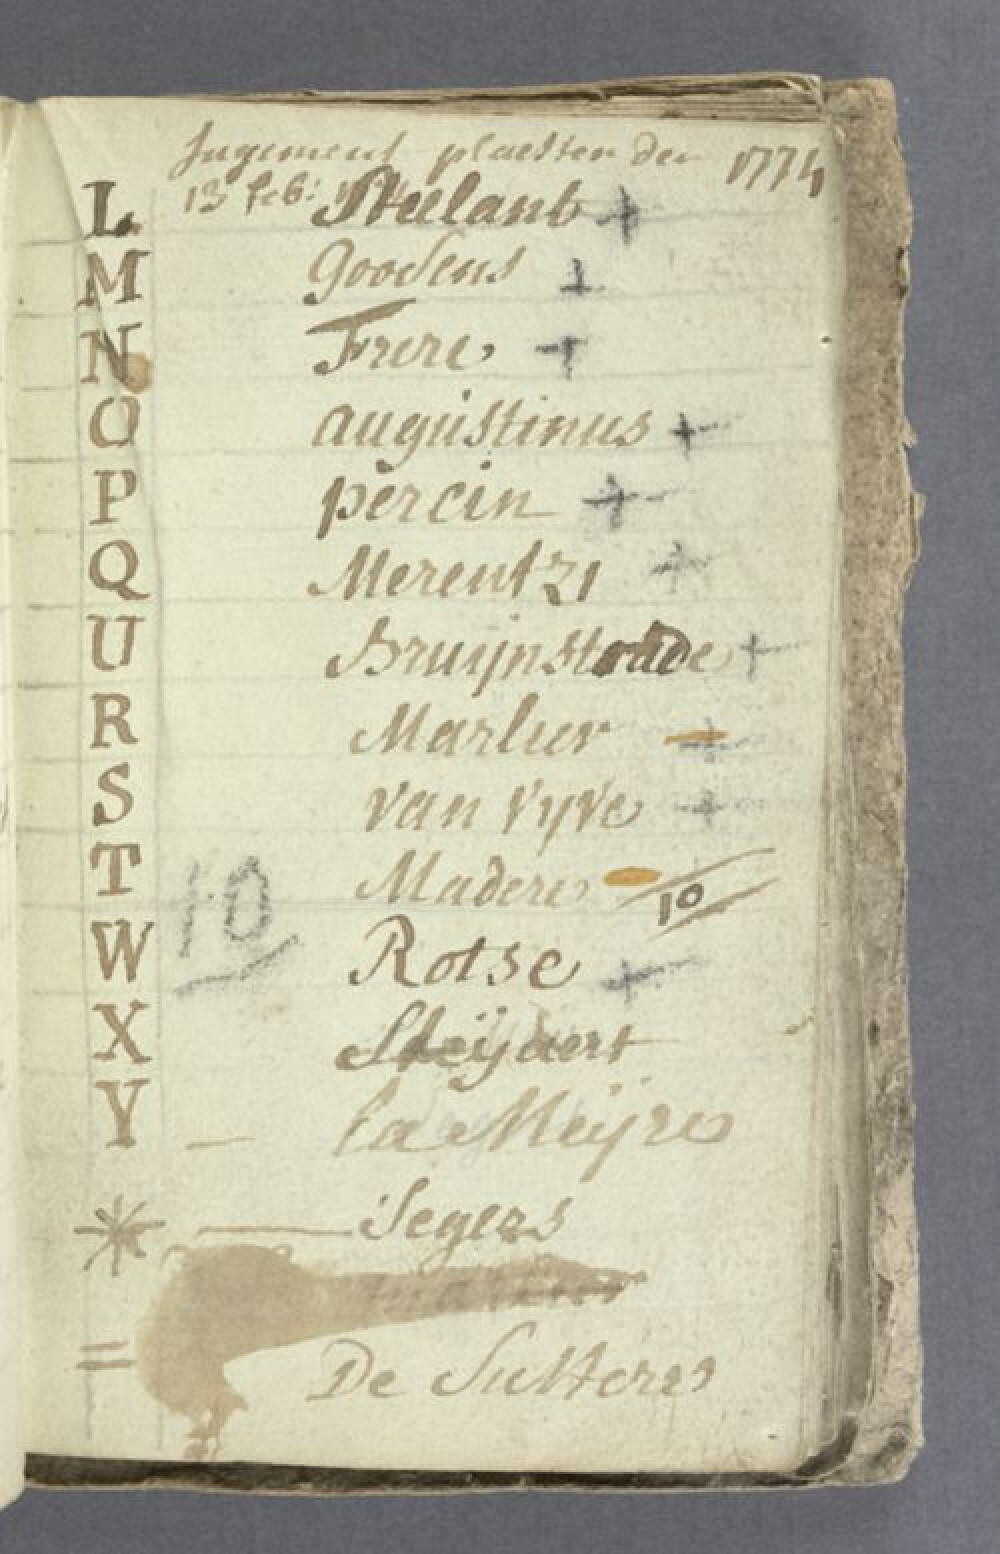 Jugement plaetsen den 1774
13 feb:
L Steelant +
M Goosens +
N Frere +
O augustinus +
P percin +
Q Merentzi +
U Bruijnstrade +
R Marlier +
S van vyve +
T Madere 10
W 10 Rotse +
X Steijaert
Y – la Meijre
* — Segers
= De Suttere